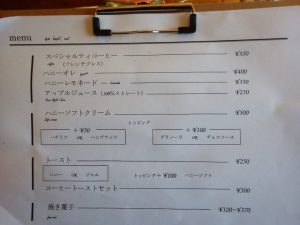 menu
スペシャルティコーヒー ¥350
(フレンチプレス)
ハニーオレ ¥400
ハニーレモネード ¥350
アップルジュース (100%ストレート) ¥250
ハニーソフトクリーム ¥300
トッピング
+ ¥50 + ¥100
ハチミツ OR ハニーナッツ グラノーラ OR チョコソース
トースト ¥250
ハニー OR ジャム トッピング + ¥100 ハニーソフト
コーヒートーストセット ¥500
焼き菓子 ¥320~¥370